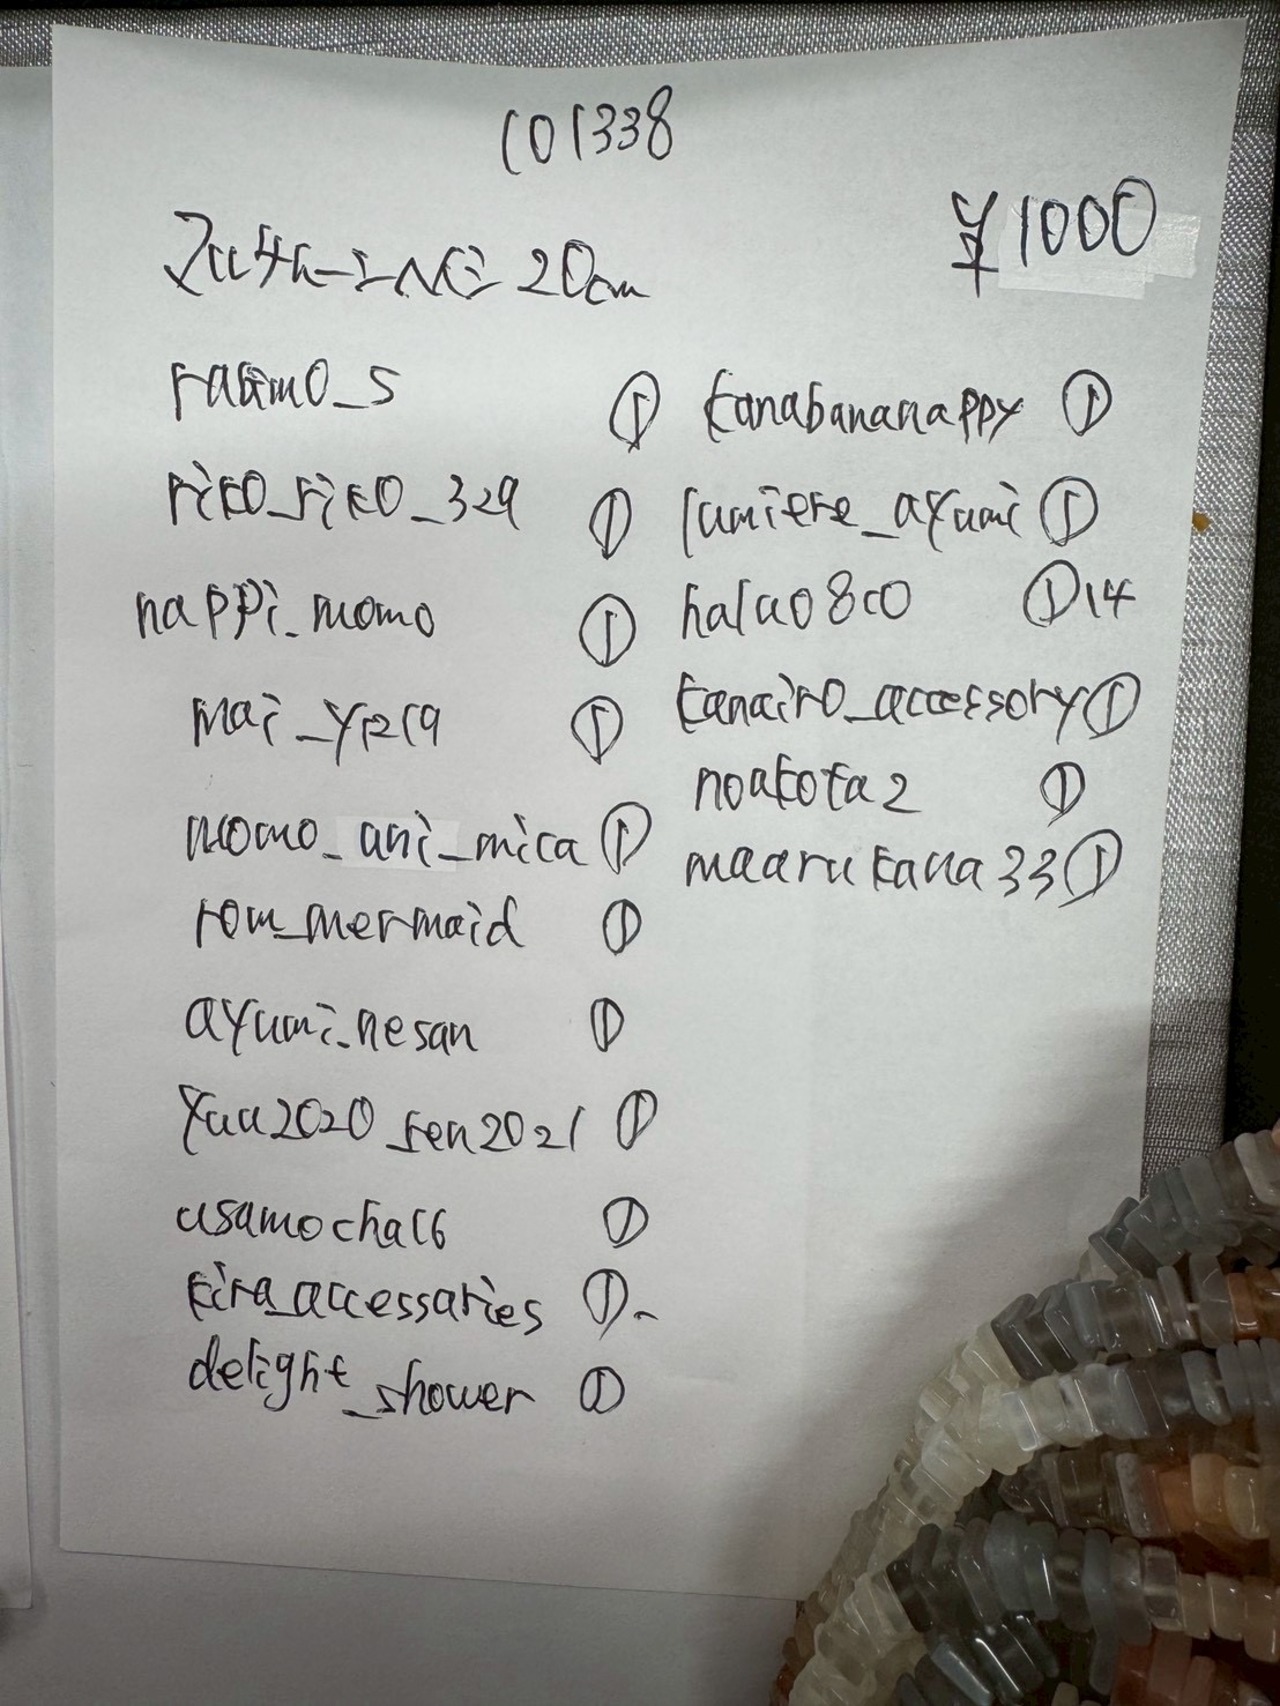 101338
¥1000
20cm
ramo_s ①
riko_riko_329 ①
nappi_momo ①
mai_y1219 ①
momo_ani_mica ①
rom_mermaid ①
ayumi_nesan ①
yuu2020_sen2021 ①
usamocha16 ①
kira_accessaries ①
delight_shower ①
kanabananappy ①
lumiere_ayumi ①
halu0800 ① 14
kanairo_accessory ①
noakota2 ①
maarukana33 ①